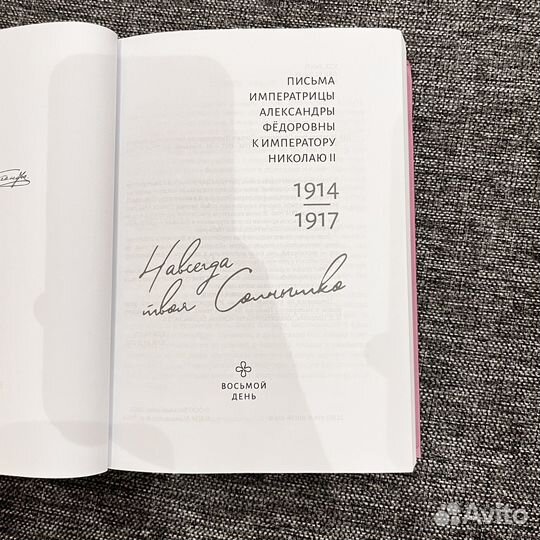 ПИСЬМА
ИМПЕРАТРИЦЫ
АЛЕКСАНДРЫ
ФЁДОРОВНЫ
К ИМПЕРАТОРУ
НИКОЛАЮ II
1914
1917
Навсегда
твоя Солнышко
ВОСЬМОЙ
ДЕНЬ
Avito